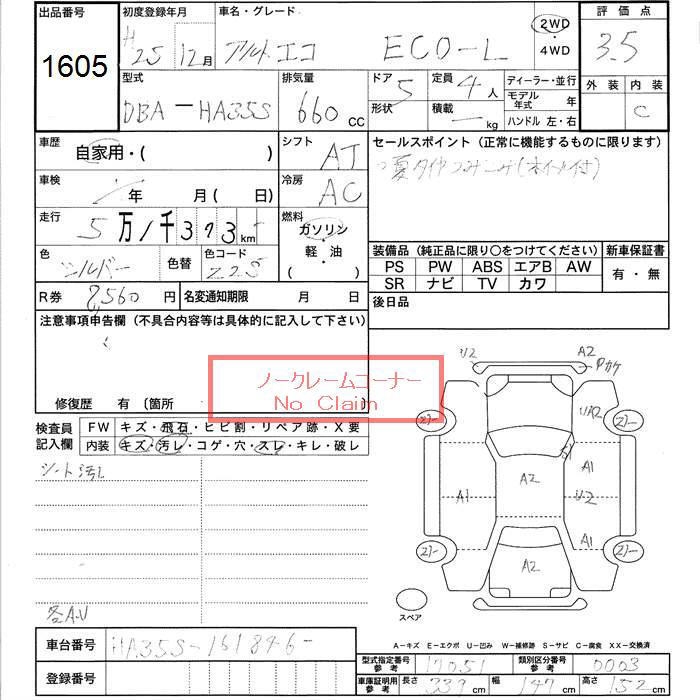 出品番号
1605
初度登録年月
H 25 12月
車名・グレード
アルト エコ ECO-L
2WD
・
4WD
評価点
3.5
外装 内装
C
型式
DBA-HA35S
排気量
660 cc
ドア 5
形状
定員 4 人
積載 — kg
ディーラー・並行
モデル年式 年
ハンドル 左・右
車歴
自家用・( )
車検
年 月(日)
走行
5万1千373km
色
シルバー
色替
色コード
Z2S
シフト
AT
冷房
AC
燃料
ガソリン
・
軽・油
( )
R券 8,560 円
名変通知期限 月 日
セールスポイント(正常に機能するものに限ります)
装備品(純正品に限り〇をつけてください)
PS PW ABS エアB AW
SR ナビ TV カワ
新車保証書
有・無
後日品
注意事項申告欄(不具合内容等は具体的に記入して下さい)
ノークレームコーナー
No Claim
修復歴 有〔箇所 〕
検査員記入欄
FW キズ・飛石・ヒビ割・リペア跡・X要
内装 キズ・汚レ・コゲ・穴・スレ・キレ・破レ
シート汚レ
各A.U
U2
A2
Pカケ
UA2
A2
A1
A1
U2
A1
A2
スペア
A-キズ E-エクボ U-凹み W-補修跡 S-サビ C-腐食 XX-交換済
車台番号 HA35S-161846-
登録番号
型式指定番号参考 17051
類別区分番号参考 0003
車庫証明用参考 長さ 339 cm 幅 147 cm 高さ 152 cm